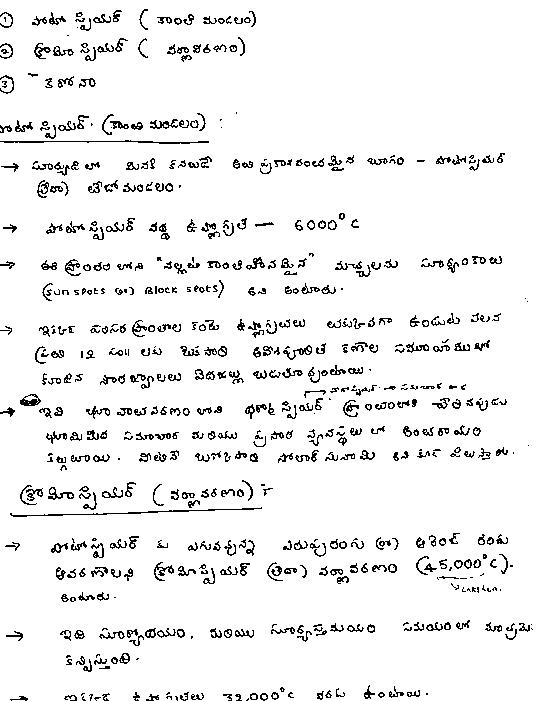 ① ఫోటో స్ఫియర్ ( కాంతి మండలం)
② క్రోమో స్ఫియర్ ( వర్ణావరణం)
③ కరోనా
ఫోటో స్ఫియర్. (కాంతి మండలం) :
→ సూర్యుడిలో మనకి కనబడే అతి ప్రకాశవంతమైన భాగం – ఫోటోస్ఫియర్
(లేదా) తేజోమండలం.
→ ఫోటో స్ఫియర్ వద్ద ఉష్ణోగ్రత — 6000°C
→ ఈ ప్రాంతం లోని "నల్లటి కాంతిహీనమైన" మచ్చలను సూర్యాంకాలు
(sun spots (or) Block spots) అని అంటారు.
→ ఇక్కడ పరిసర ప్రాంతాల కంటే ఉష్ణోగ్రతలు తక్కువగా ఉండుట వలన
ప్రతి 12 సం॥ లకు ఒకసారి కణాల సముదాయముతో
కూడిన సౌరజ్వాలలు వెదజల్లు బడుతూ ఉంటాయి.
→ ఇవి భూ వాతావరణం లోని స్ఫియర్ ప్రాంతంలోకి చేరినప్పుడు
భూమిమీద సమాచార మరియు ప్రసార వ్యవస్థలు లో అంతరాయం
కల్గుతాయి. వీటినే ఒక్కోసారి సోలార్ సునామి అని కూడ పిలుస్తారు.
క్రోమోస్ఫియర్ ( వర్ణావరణం) :-
→ ఫోటోస్ఫియర్ కు ఎగువవున్న ఎరుపురంగు (or) ఆరెంజ్ రంగు
ఆవరణాలని క్రోమోస్ఫియర్ (లేదా) వర్ణావరణం (45,000°C).
అంటారు.
→ ఇది సూర్యోదయం, మరియు సూర్యాస్తమయం సమయంలో మాత్రమే
కన్పిస్తుంది.
→ ఇక్కడ ఉష్ణోగ్రతలు 32,000°C వరకు ఉంటాయి.